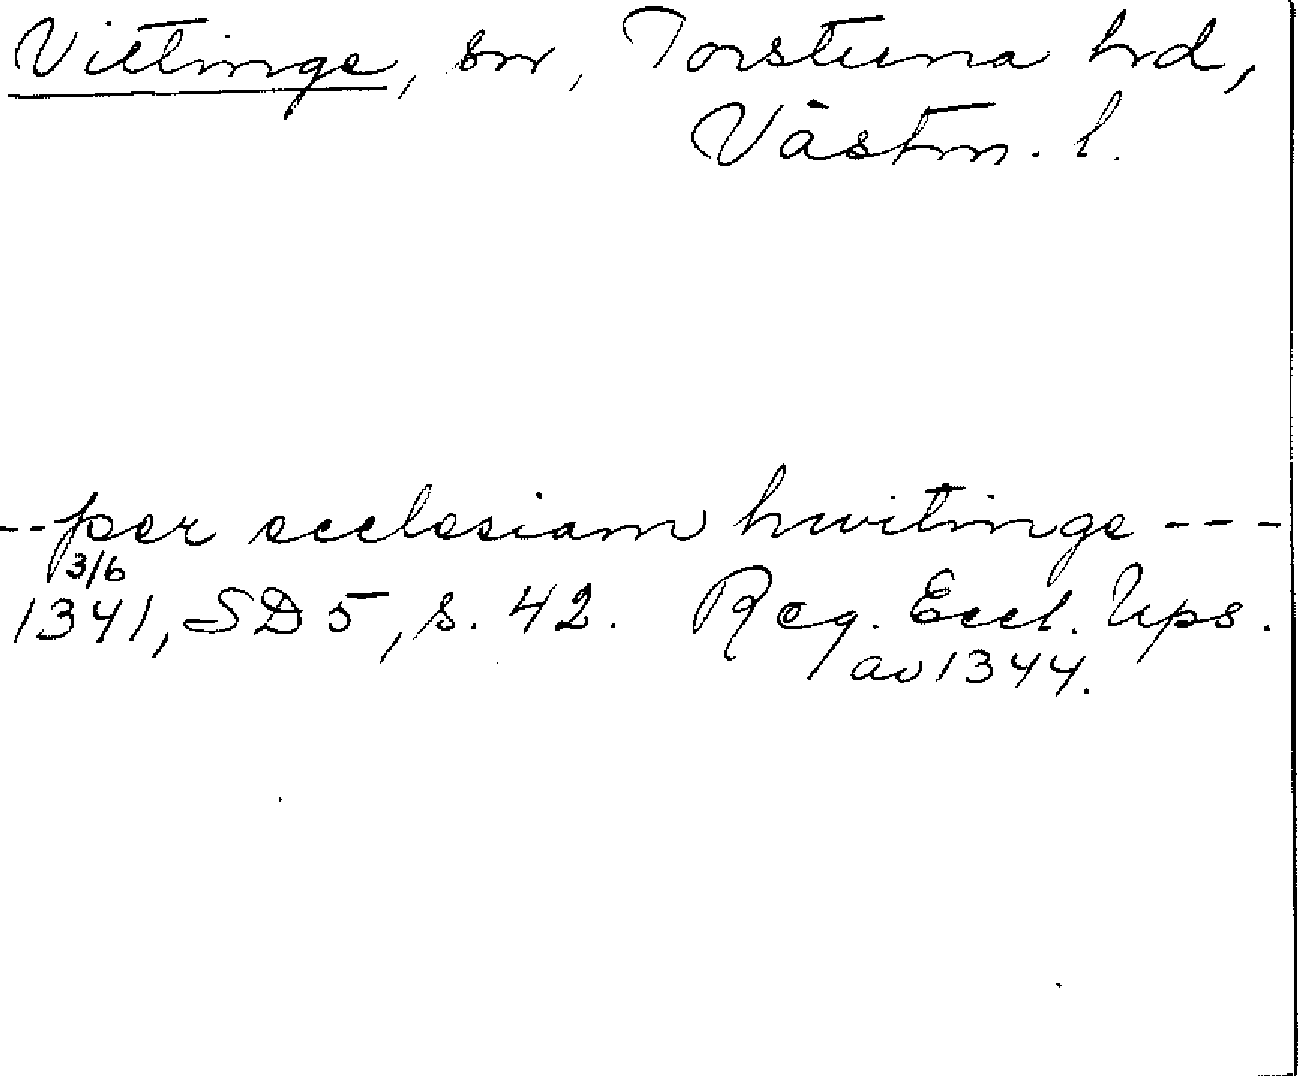 Vittinge, sn, Torstuna hd,
Västm. l.
--per ecclesiam hwitinge---
3/6
1341, SD 5, s. 42. Reg. Eccl. Ups.
av 1344.